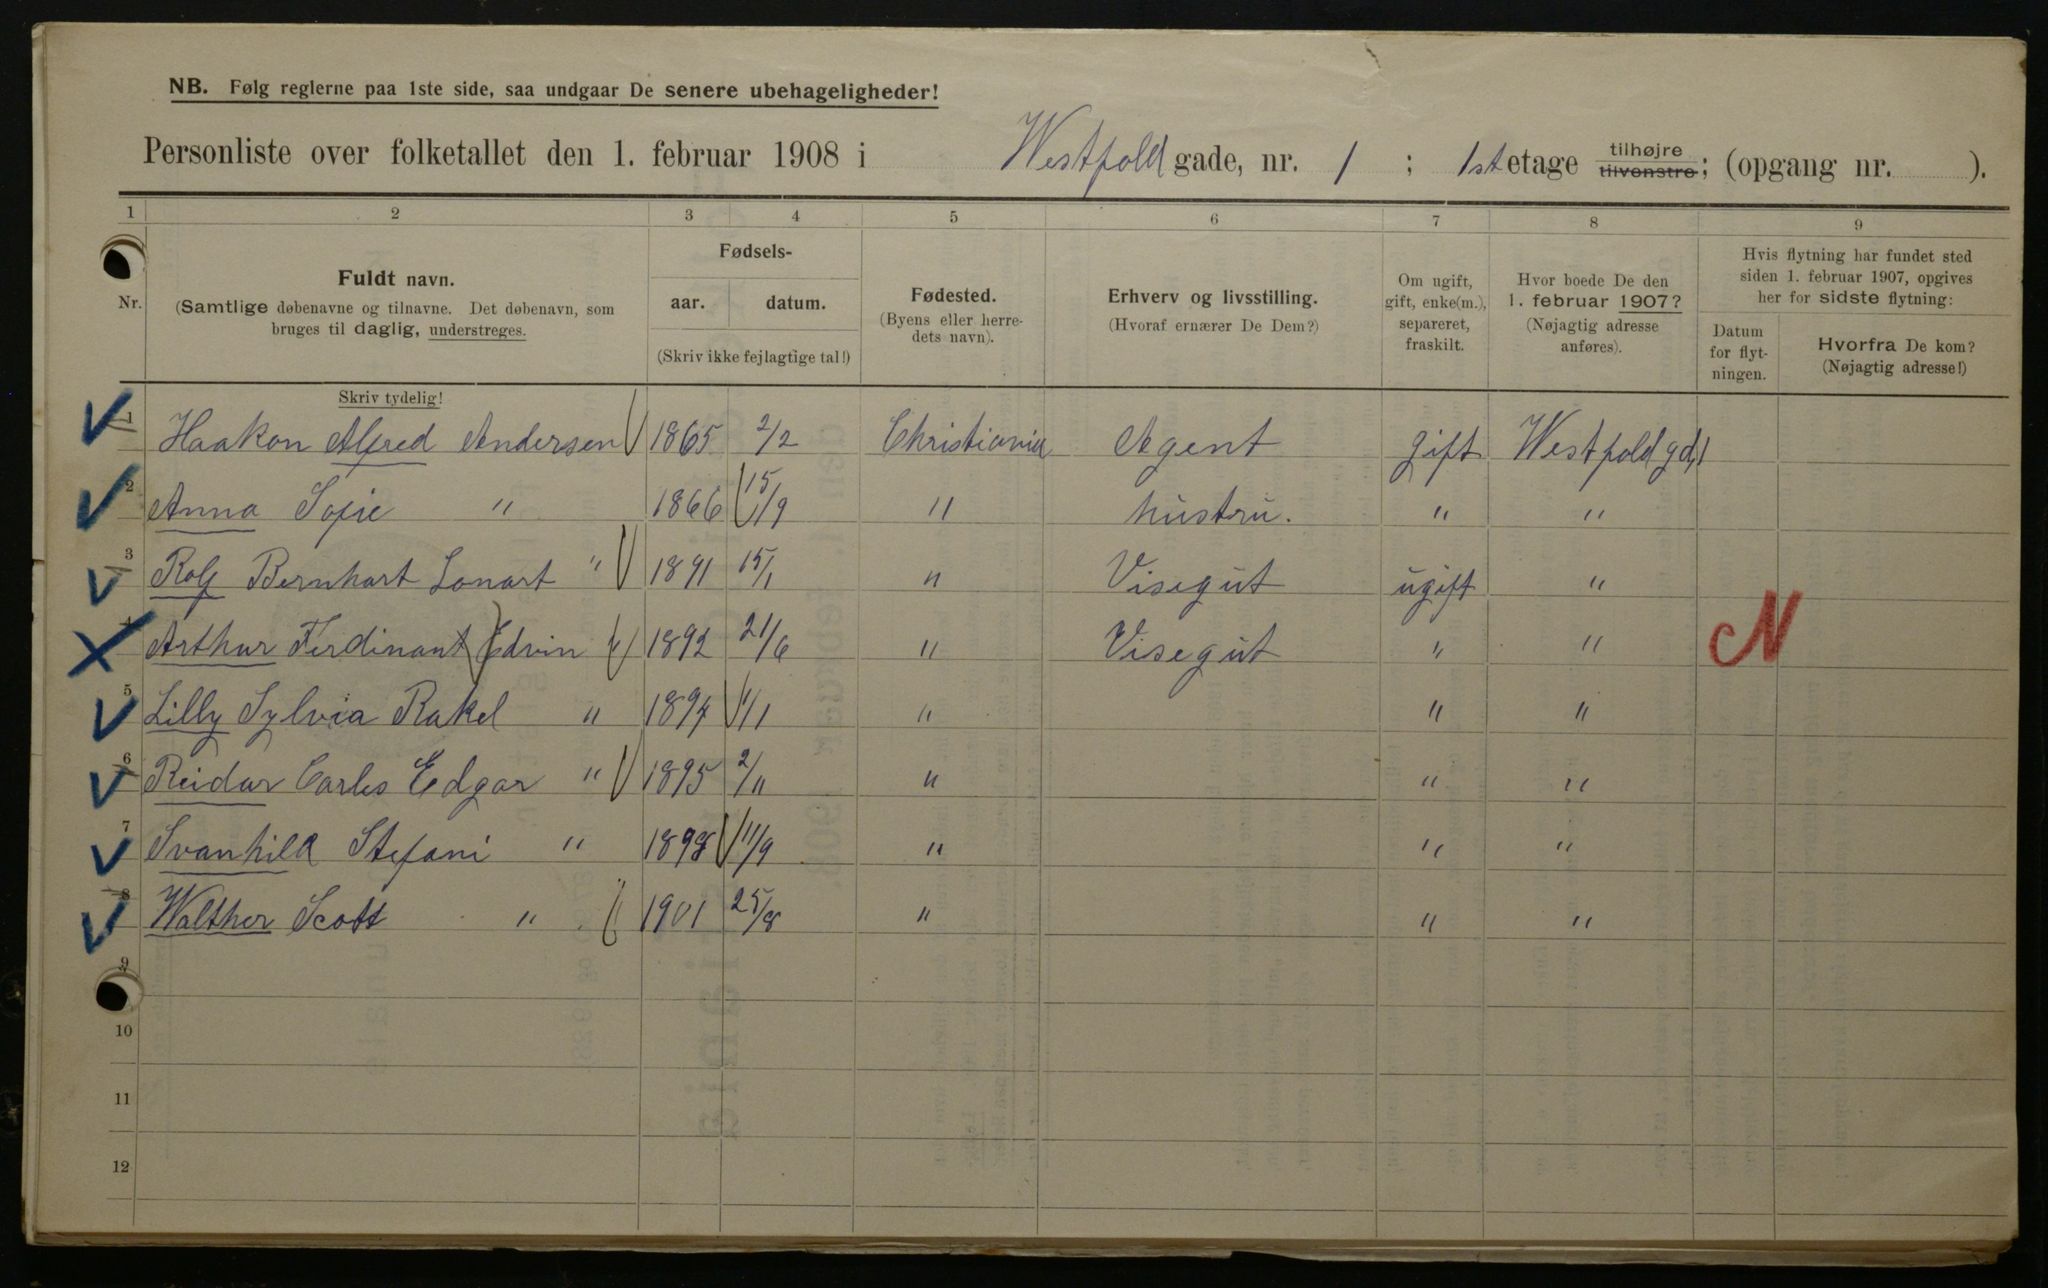 NB. Følg reglerne paa 1ste side, saa undgaar De senere ubehageligheder!
Personliste over folketallet den 1. februar 1908 i Westfold gade, nr. 1 ; 1st etage tilhøjre tilvenstre; (opgang nr. ).
1 2 3 4 5 6 7 8 9
Nr.
Fuldt navn.
(Samtlige døbenavne og tilnavne. Det døbenavn, som
bruges til daglig, understreges.
Fødsels-
aar. datum.
(Skriv ikke fejlagtige tal!)
Fødested.
(Byens eller herre-
dets navn).
Erhverv og livsstilling.
(Hvoraf ernærer De Dem?)
Om ugift,
gift, enke(m.),
separeret,
fraskilt.
Hvor boede De den
1. februar 1907?
(Nøjagtig adresse
anføres).
Hvis flytning har fundet sted
siden 1. februar 1907, opgives
her for sidste flytning:
Datum
for flyt-
ningen.
Hvorfra De kom?
(Nøjagtig adresse!)
Skriv tydelig!
1 Haakon Alfred Andersen 1865 2/2 Christiania Agent gift Westfold gd, 1
2 Anna Sofie " 1866 15/9 " hustru. " "
3 Rolf Bernhart Lonart " 1891 15/1 " Visegut ugift "
4 Arthur Ferdinant Edvin " 1892 21/6 " Visegut " " N
5 Lilly Sylvia Rakel " 1894 1/1 " " "
6 Reidar Carles Edgar " 1895 2/11 " " "
7 Svanhild Stefani " 1898 11/9 " " "
8 Walther Scott " 1901 25/8 " " "
9
10
11
12